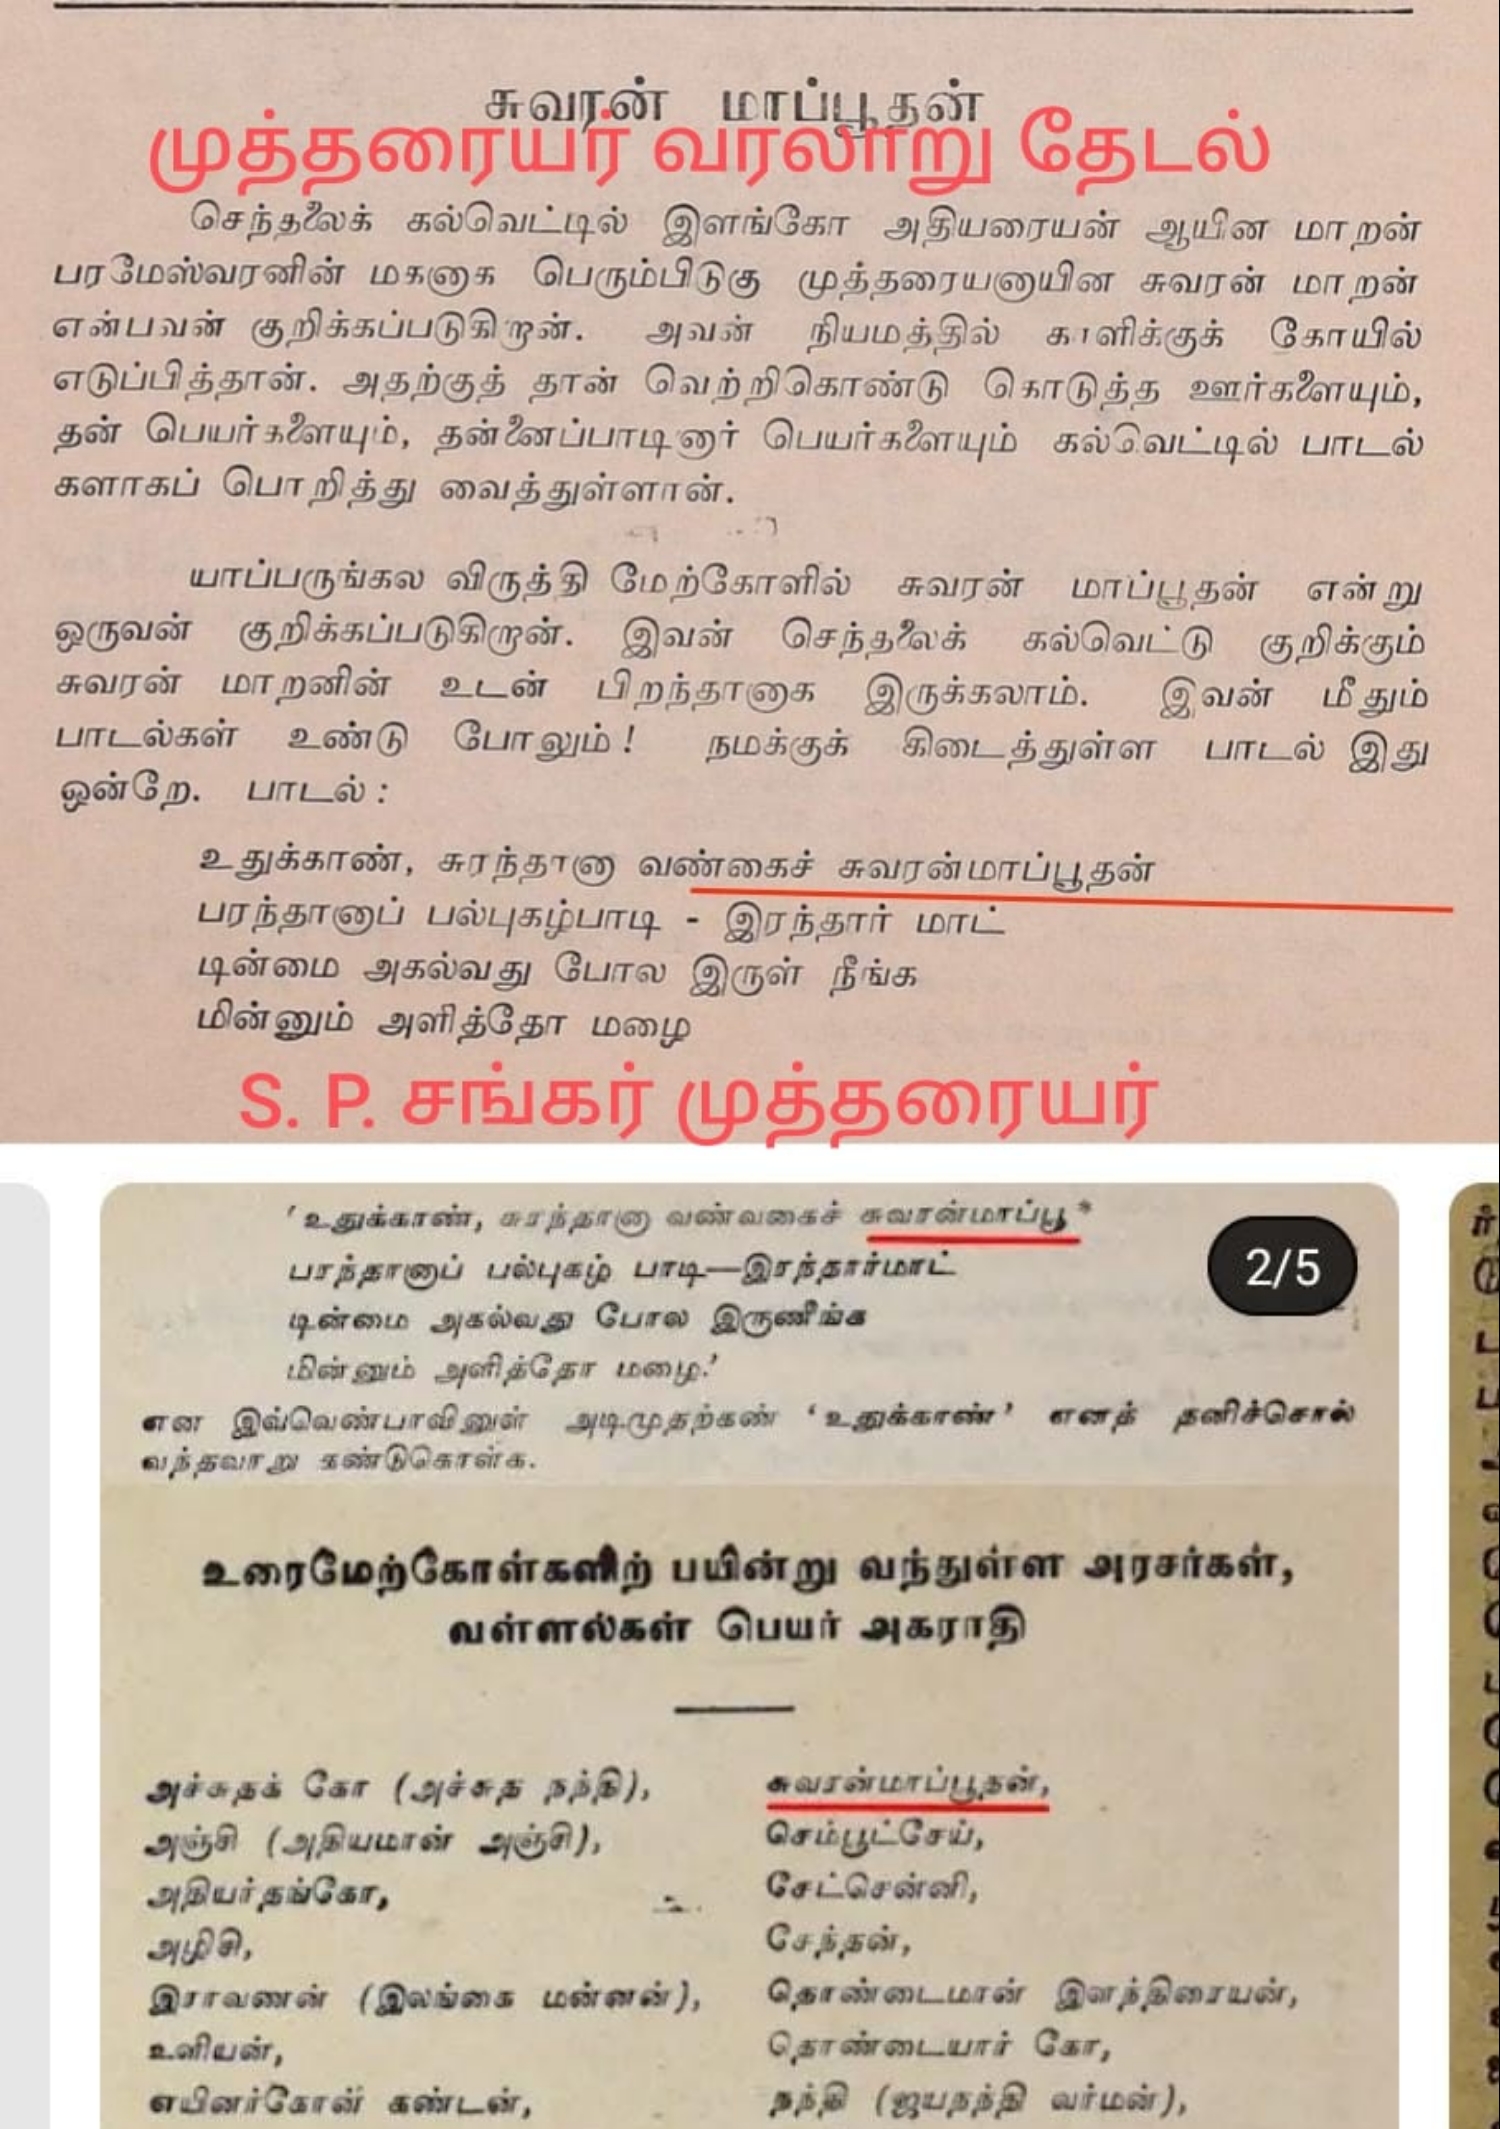 சுவரன் மாப்பூதன்
முத்தரையர் வரலாறு தேடல்
செந்தலைக் கல்வெட்டில் இளங்கோ அதியரையன் ஆயின மாறன்
பரமேஸ்வரனின் மகனாக பெரும்பிடுகு முத்தரையனாயின சுவரன் மாறன்
என்பவன் குறிக்கப்படுகிறான். அவன் நியமத்தில் காளிக்குக் கோயில்
எடுப்பித்தான். அதற்குத் தான் வெற்றிகொண்டு கொடுத்த ஊர்களையும்,
தன் பெயர்களையும், தன்னைப்பாடினார் பெயர்களையும் கல்வெட்டில் பாடல்
களாகப் பொறித்து வைத்துள்ளான்.
யாப்பருங்கல விருத்தி மேற்கோளில் சுவரன் மாப்பூதன் என்று
ஒருவன் குறிக்கப்படுகிறான். இவன் செந்தலைக் கல்வெட்டு குறிக்கும்
சுவரன் மாறனின் உடன் பிறந்தானாக இருக்கலாம். இவன் மீதும்
பாடல்கள் உண்டு போலும்! நமக்குக் கிடைத்துள்ள பாடல் இது
ஒன்றே. பாடல்:
உதுக்காண், சுரந்தானா வண்கைச் சுவரன்மாப்பூதன்
பரந்தானாப் பல்புகழ்பாடி - இரந்தார் மாட்
டின்மை அகல்வது போல இருள் நீங்க
மின்னும் அளித்தோ மழை
S. P. சங்கர் முத்தரையர்
'உதுக்காண், சுரந்தானா வண்வகைச் சுவரன்மாப்பூ*
பரந்தானாப் பல்புகழ் பாடி—இரந்தார்மாட்
டின்மை அகல்வது போல இருணீங்க
மின்னும் அளித்தோ மழை.'
என இவ்வெண்பாவினுள் அடிமுதற்கண் 'உதுக்காண்' எனத் தனிச்சொல்
வந்தவாறு கண்டுகொள்க.
2/5
உரைமேற்கோள்களிற் பயின்று வந்துள்ள அரசர்கள்,
வள்ளல்கள் பெயர் அகராதி
அச்சுதக் கோ (அச்சுத நந்தி),
அஞ்சி (அதியமான் அஞ்சி),
அதியர்தங்கோ,
அழிசி,
இராவணன் (இலங்கை மன்னன்),
உளியன்,
எயினர்கோன் கண்டன்,
சுவரன்மாப்பூதன்,
செம்பூட்சேய்,
சேட்சென்னி,
சேந்தன்,
தொண்டைமான் இளந்திரையன்,
தொண்டையார் கோ,
நந்தி (ஜயநந்தி வர்மன்),